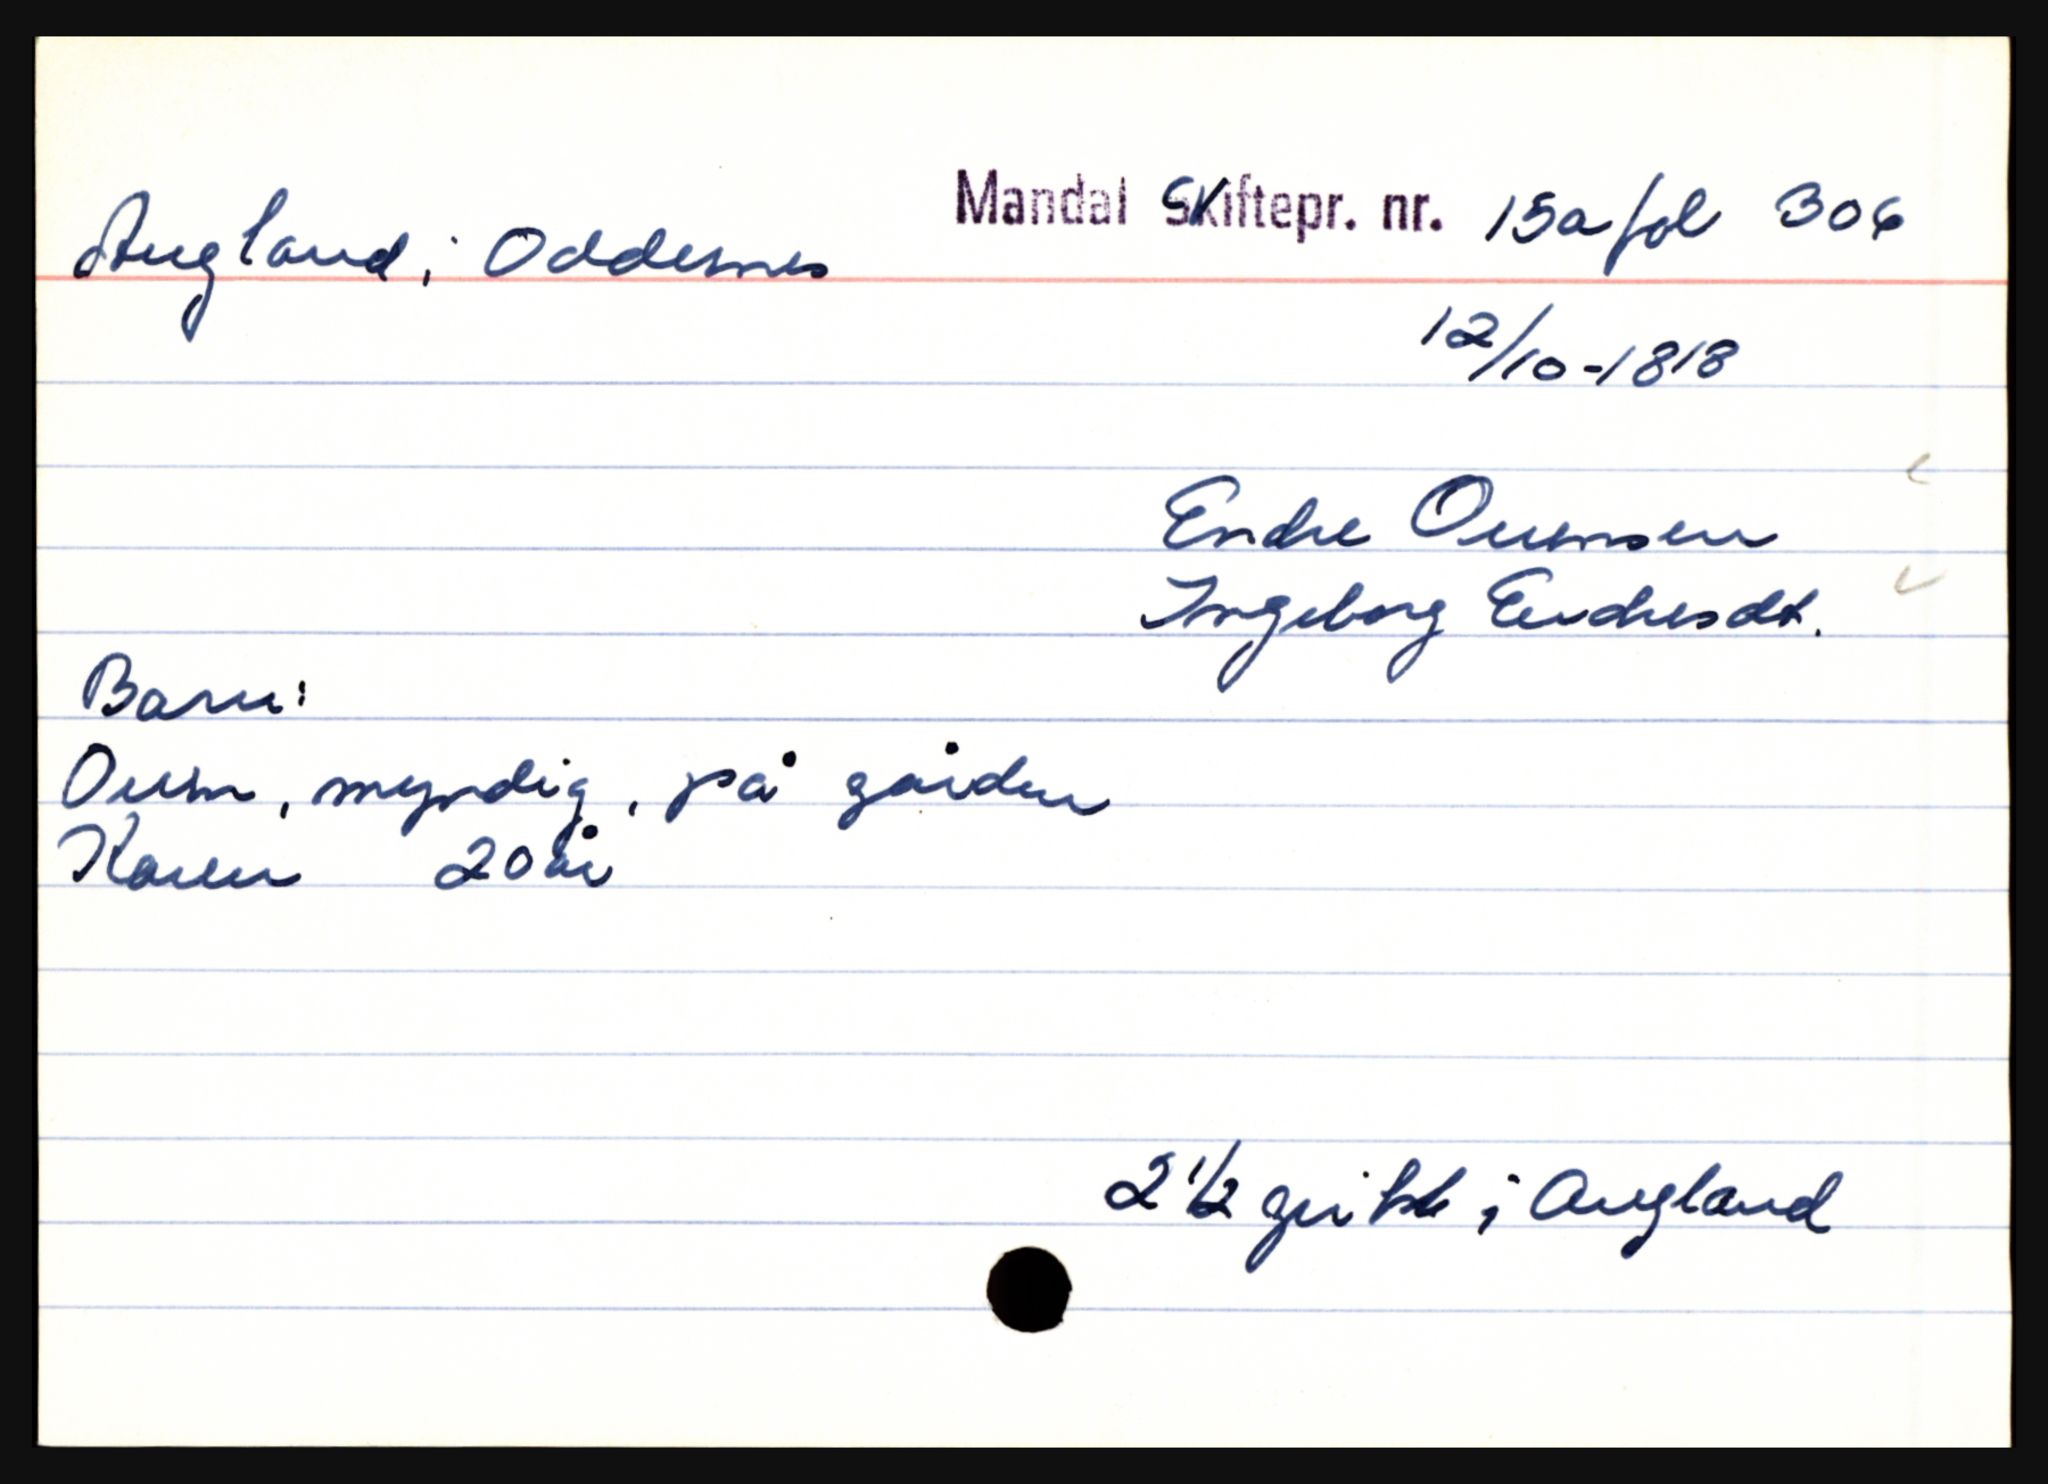 Augland i Oddernes
Mandal Skiftepr. nr. 15a fol 306
12/10-1818
Endre Ouensen
Ingeborg Endresdt.
Barn:
Ouen, myndig, på gården
Karen 20 år
2 1/2 i Augland